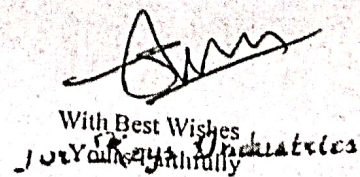 With Best Wishes
for Industries
Yours faithfully